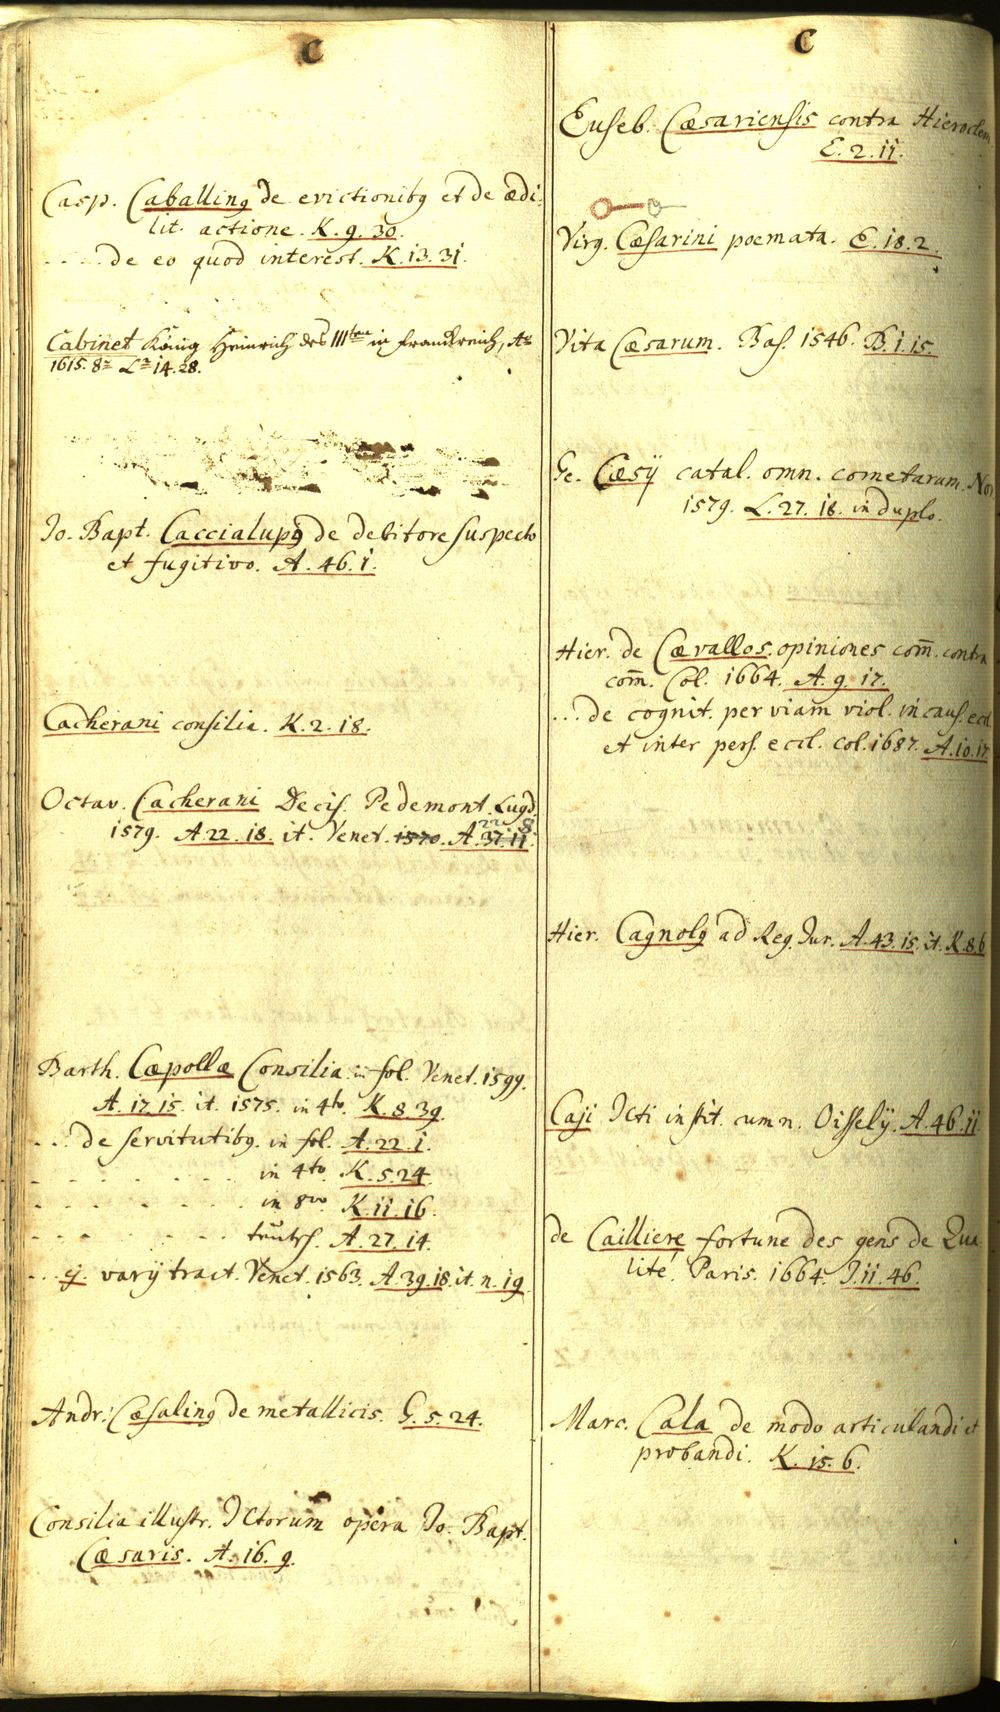 C
Casp. Caballinꝯ de evictionibꝯ et de ædi-
lit. actione. K. 9. 30.
.... de eo quod interest. K. 13. 31.
Cabinet König Heinrich des IIIten in Franckreich, Aō
1615. 8º Lª 14. 28.
Jo. Bapt. Caccialupꝯ de debitore suspecto
et fugitivo. A. 46. 1.
Cacherani consilia. K. 2. 18.
Octav. Cacherani Decis. Pedemont. Lugd.
1579. A 22. 18. it. Venet. 1570. A. 37. 11.
22 8.
Barth. Cæpollæ Consilia in fol. Venet. 1599.
A. 17. 15. it. 1575. in 4to. K. 8. 39.
... de servitutibꝯ. in fol. A. 22. 1.
in 4to K. 5. 24.
in 8vo K. 11. 16.
teutsch. A. 27. 14.
... ej. varÿ tract. Venet. 1563. A. 39. 18. it. n. 19.
Andr. Cæsalinꝯ de metallicis. G. 5. 24.
Consilia illustr. JCtorum opera Jo. Bapt.
Cæsaris. A. 16. 9.
C
Euseb. Cæsariensis contra Hieroclem
E. 2. 11.
Virg. Cæsarini poemata. E. 18. 2.
Vita Cæsarum. Bas. 1546. B. 1. 15.
Ge. Cæsÿ catal. omn. cometarum. Nor
1579. L. 27. 18. in duplo.
Hier. de Cævallos. opiniones com̄. contra
com̄. Col. 1664. A. 9. 17.
... de cognit. per viam viol. in caus. eccl.
et inter pers. eccl. Col. 1687. A. 10. 17.
Hier. Cagnolꝯ ad Reg. Jur. A. 43. 15. it. K. 8. 6
Caji JCti instit. cum n. Oisselÿ. A. 46. 11
de Cailliere fortune des gens de Qua-
lité. Paris. 1664. J. 11. 46.
Marc. Cala de modo articulandi et
probandi. K. 15. 6.